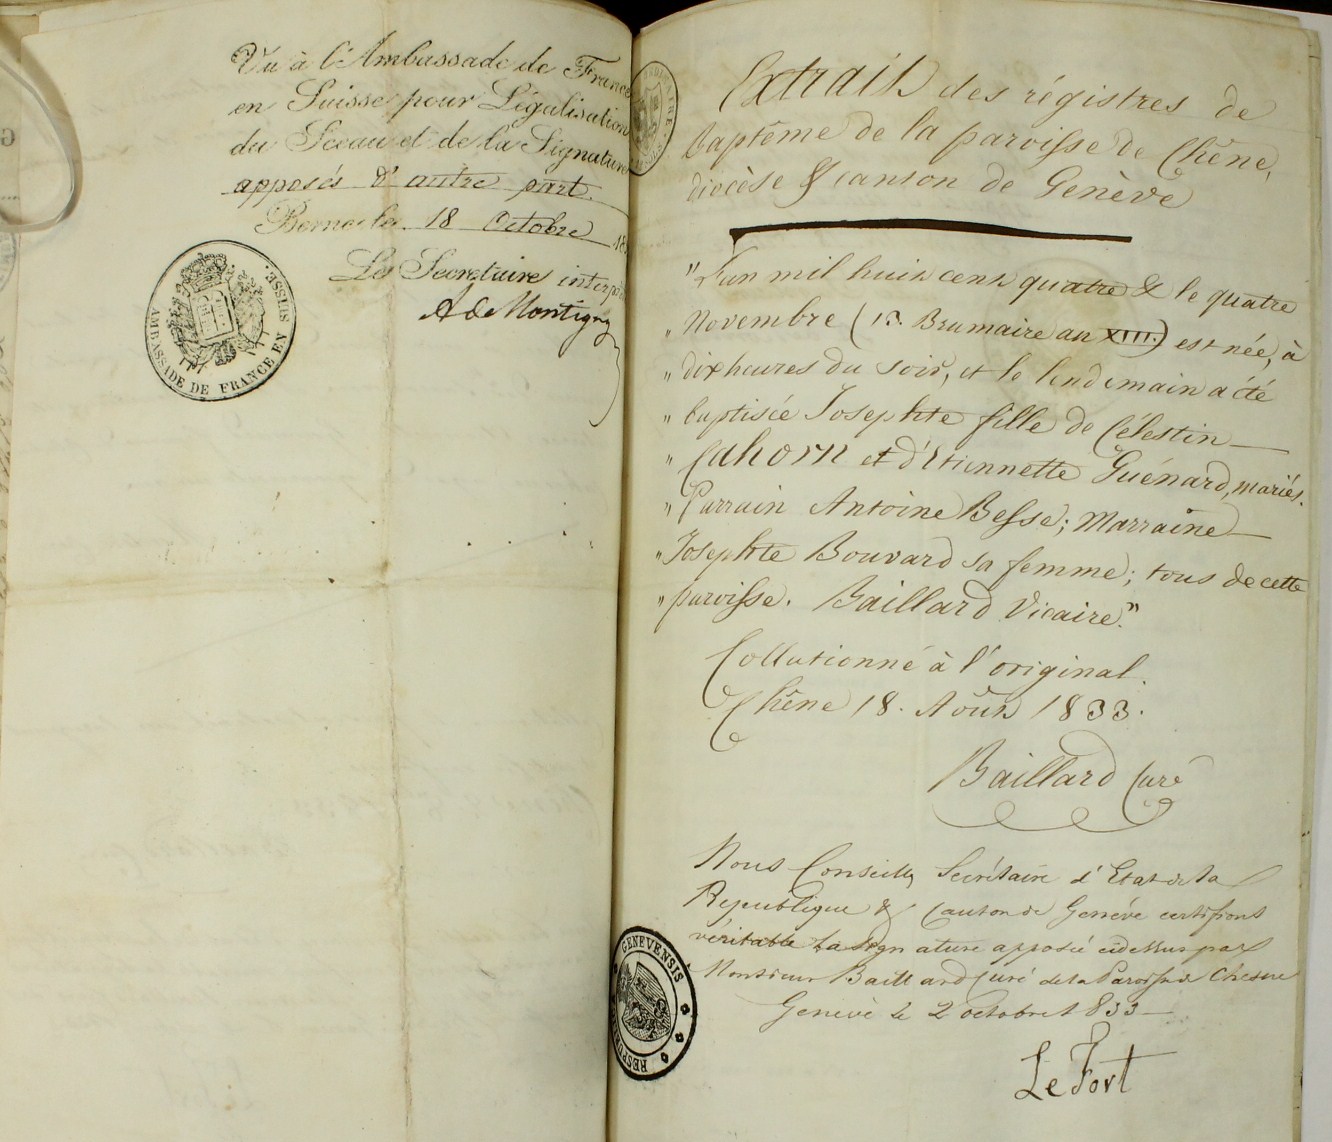 Vu à l'Ambassade de France
en Suisse pour Légalisation
du Sceau et de la Signature
apposés d'autre part.
Berne le 18 Octobre 18
Le Secrétaire interp
A de Montigny
AMBASSADE DE FRANCE EN SUISSE.
Extrait des régistres de
baptême de la paroisse de Chêne,
diocèse & canton de Genève
"L'an mil huit cent quatre & le quatre
" Novembre (13. Brumaire an XIII.) est née, à
" dix heures du soir, et le lendemain a été
" baptisée Josephte fille de Célestin
" Cahorn et d'Etiennette Guénard, mariés.
" Parrain Antoine Besse; Marraine
" Josephte Bouvard sa femme; tous de cette
" paroisse. Baillard Vicaire."
Collationné à l'original.
Chêne 18. Août 1833.
Baillard Curé
Nous Conseiller Secrétaire d'Etat de la
République & Canton de Genève certifions
véritable la signature apposée ci dessus par
Monsieur Baillard Curé de la Paroisse de Chesne
Genève le 2 octobre 1833
Le Fort
GENEVENSIS RESPU